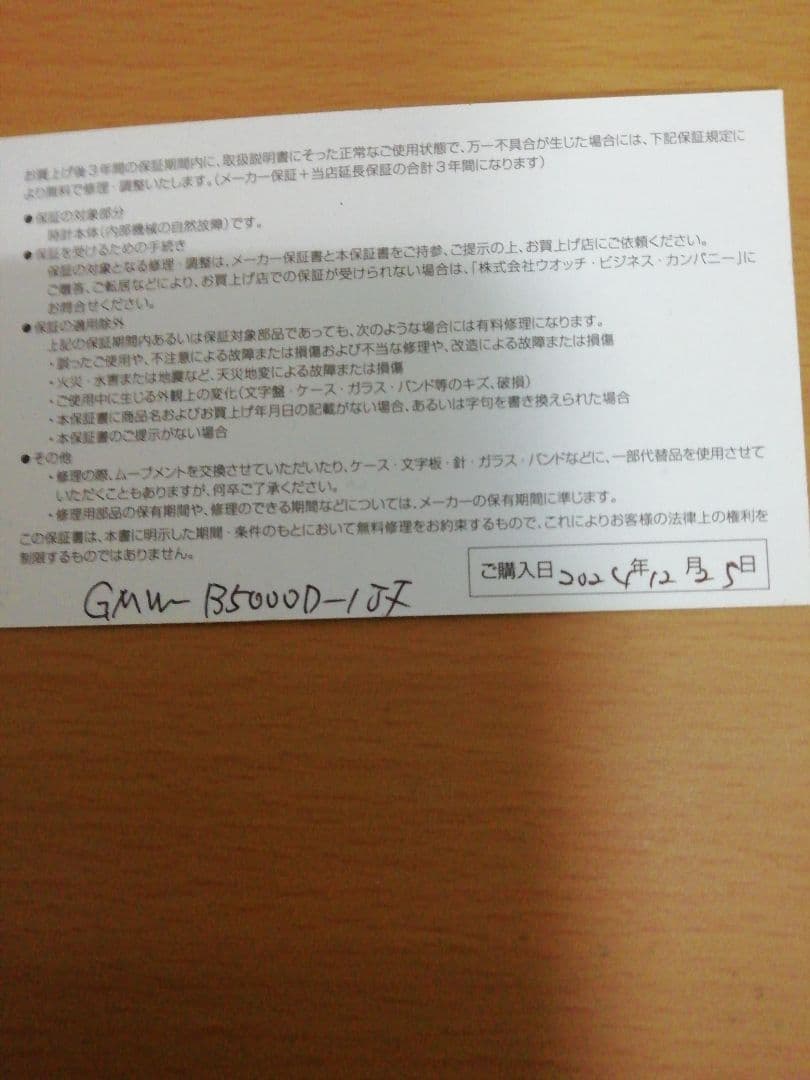 お買上げ後3年間の保証期間内に、取扱説明書にそった正常なご使用状態で、万一不具合が生じた場合には、下記保証規定に
より無料で修理・調整いたします。(メーカー保証+当店延長保証の合計3年間になります)
●保証の対象部分
時計本体(内部機械の自然故障)です。
●保証を受けるための手続き
保証の対象となる修理・調整は、メーカー保証書と本保証書をご持参、ご提示の上、お買上げ店にご依頼ください。
ご贈答、ご転居などにより、お買上げ店での保証が受けられない場合は、「株式会社ウオッチ・ビジネス・カンパニー」に
お問合せください。
●保証の適用除外
上記の保証期間内あるいは保証対象部品であっても、次のような場合には有料修理になります。
・誤ったご使用や、不注意による故障または損傷および不当な修理や、改造による故障または損傷
・火災・水害または地震など、天災地変による故障または損傷
・ご使用中に生じる外観上の変化(文字盤・ケース・ガラス・バンド等のキズ、破損)
・本保証書に商品名およびお買上げ年月日の記載がない場合、あるいは字句を書き換えられた場合
・本保証書のご提示がない場合
●その他
・修理の際、ムーブメントを交換させていただいたり、ケース・文字板・針・ガラス・バンドなどに、一部代替品を使用させて
いただくこともありますが、何卒ご了承ください。
・修理用部品の保有期間や、修理のできる期間などについては、メーカーの保有期間に準じます。
この保証書は、本書に明示した期間・条件のもとにおいて無料修理をお約束するもので、これによりお客様の法律上の権利を
制限するものではありません。
ご購入日 2024年12月25日
GMW-B5000D-1JF